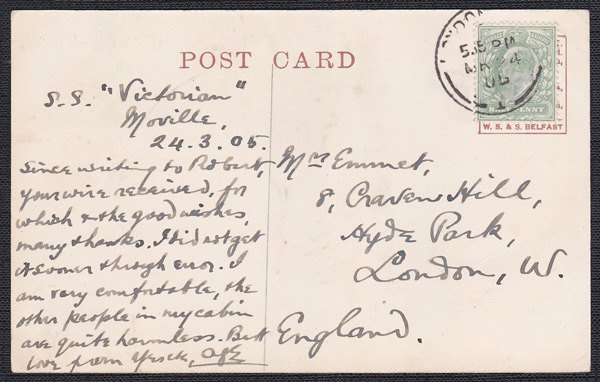 POST CARD
S.S. "Victorian"
Moville,
24.3.05.
Since writing to Robert,
your wire received, for
which & the good wishes,
many thanks. I did not get
it sooner through error. I
am very comfortable, the
other people in my cabin
are quite harmless. Best
love from
Mrs Emmet,
8, Craven Hill,
Hyde Park,
London, W.
England.
5.15 PM
W. S. & S. BELFAST